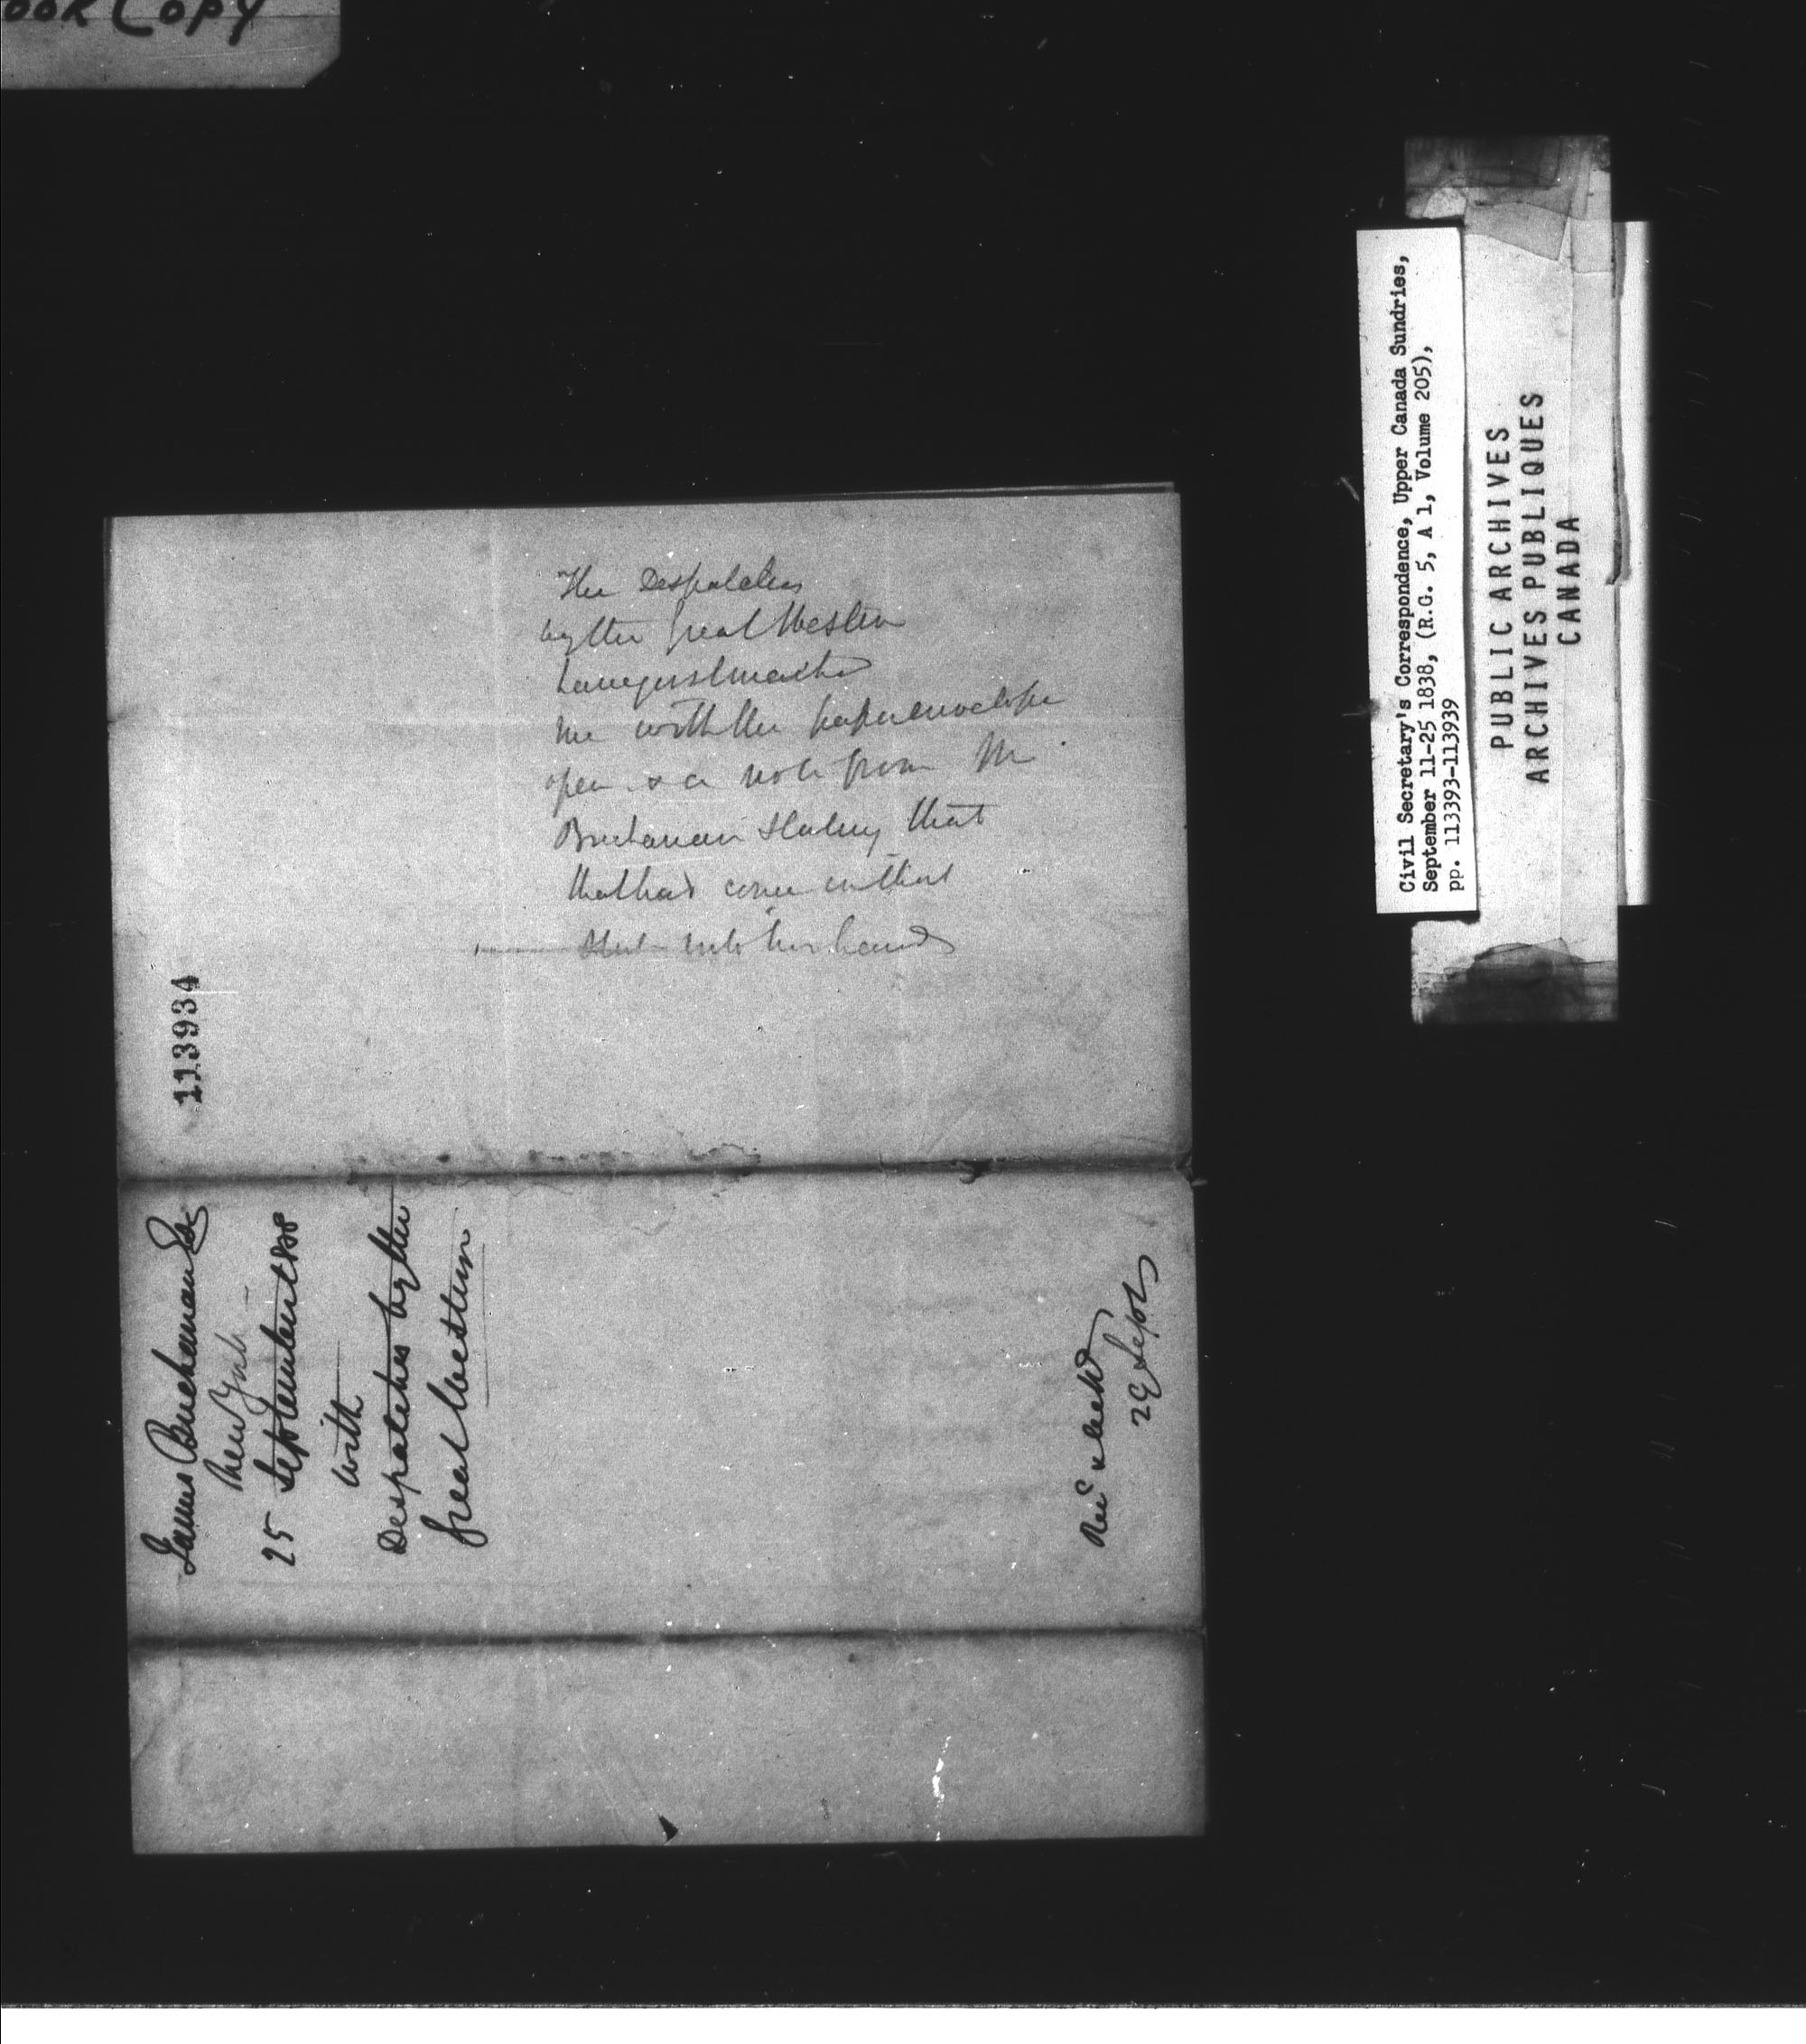 ook Copy
The Despatches
by the Great Western
have just reached
me with the paper envelope
open & a note from Mr
Buchanan stating that
that had come in that
into his hands
113934
James Buchanan Esq
New York
25 September 1838
with
Despatches by the
Great Western
Rec &
29 Septr
Civil Secretary's Correspondence, Upper Canada Sundries,
September 11-25 1838, (R.G. 5, A 1, Volume 205),
pp. 113393-113939
PUBLIC ARCHIVES
ARCHIVES PUBLIQUES
CANADA